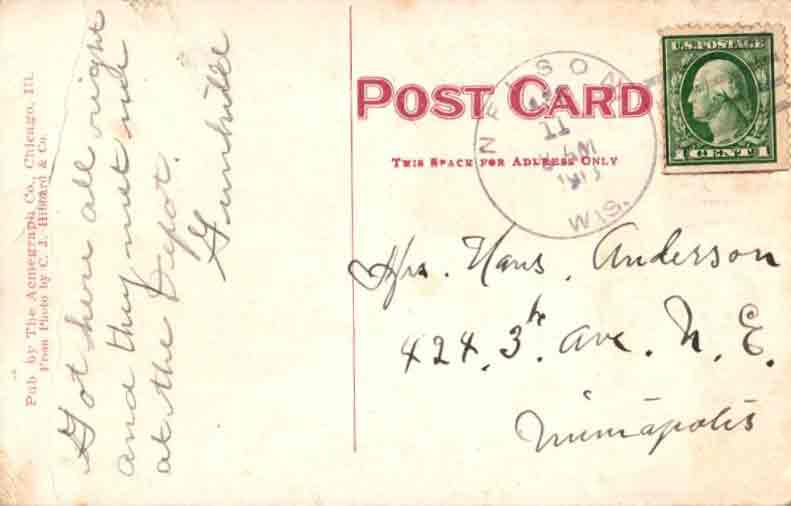 Pub by The Acmegraph Co., Chicago, Ill.
From Photo by C. J. Hibbard & Co.
Got here all right
and they met me
at the Depot.
Gunhild
POST CARD
THIS SPACE FOR ADDRESS ONLY
NELSON
WIS.
U.S. POSTAGE
1 CENT 1
Mrs. Hans. Anderson
424. 3th. Ave. N. E.
Minneapolis